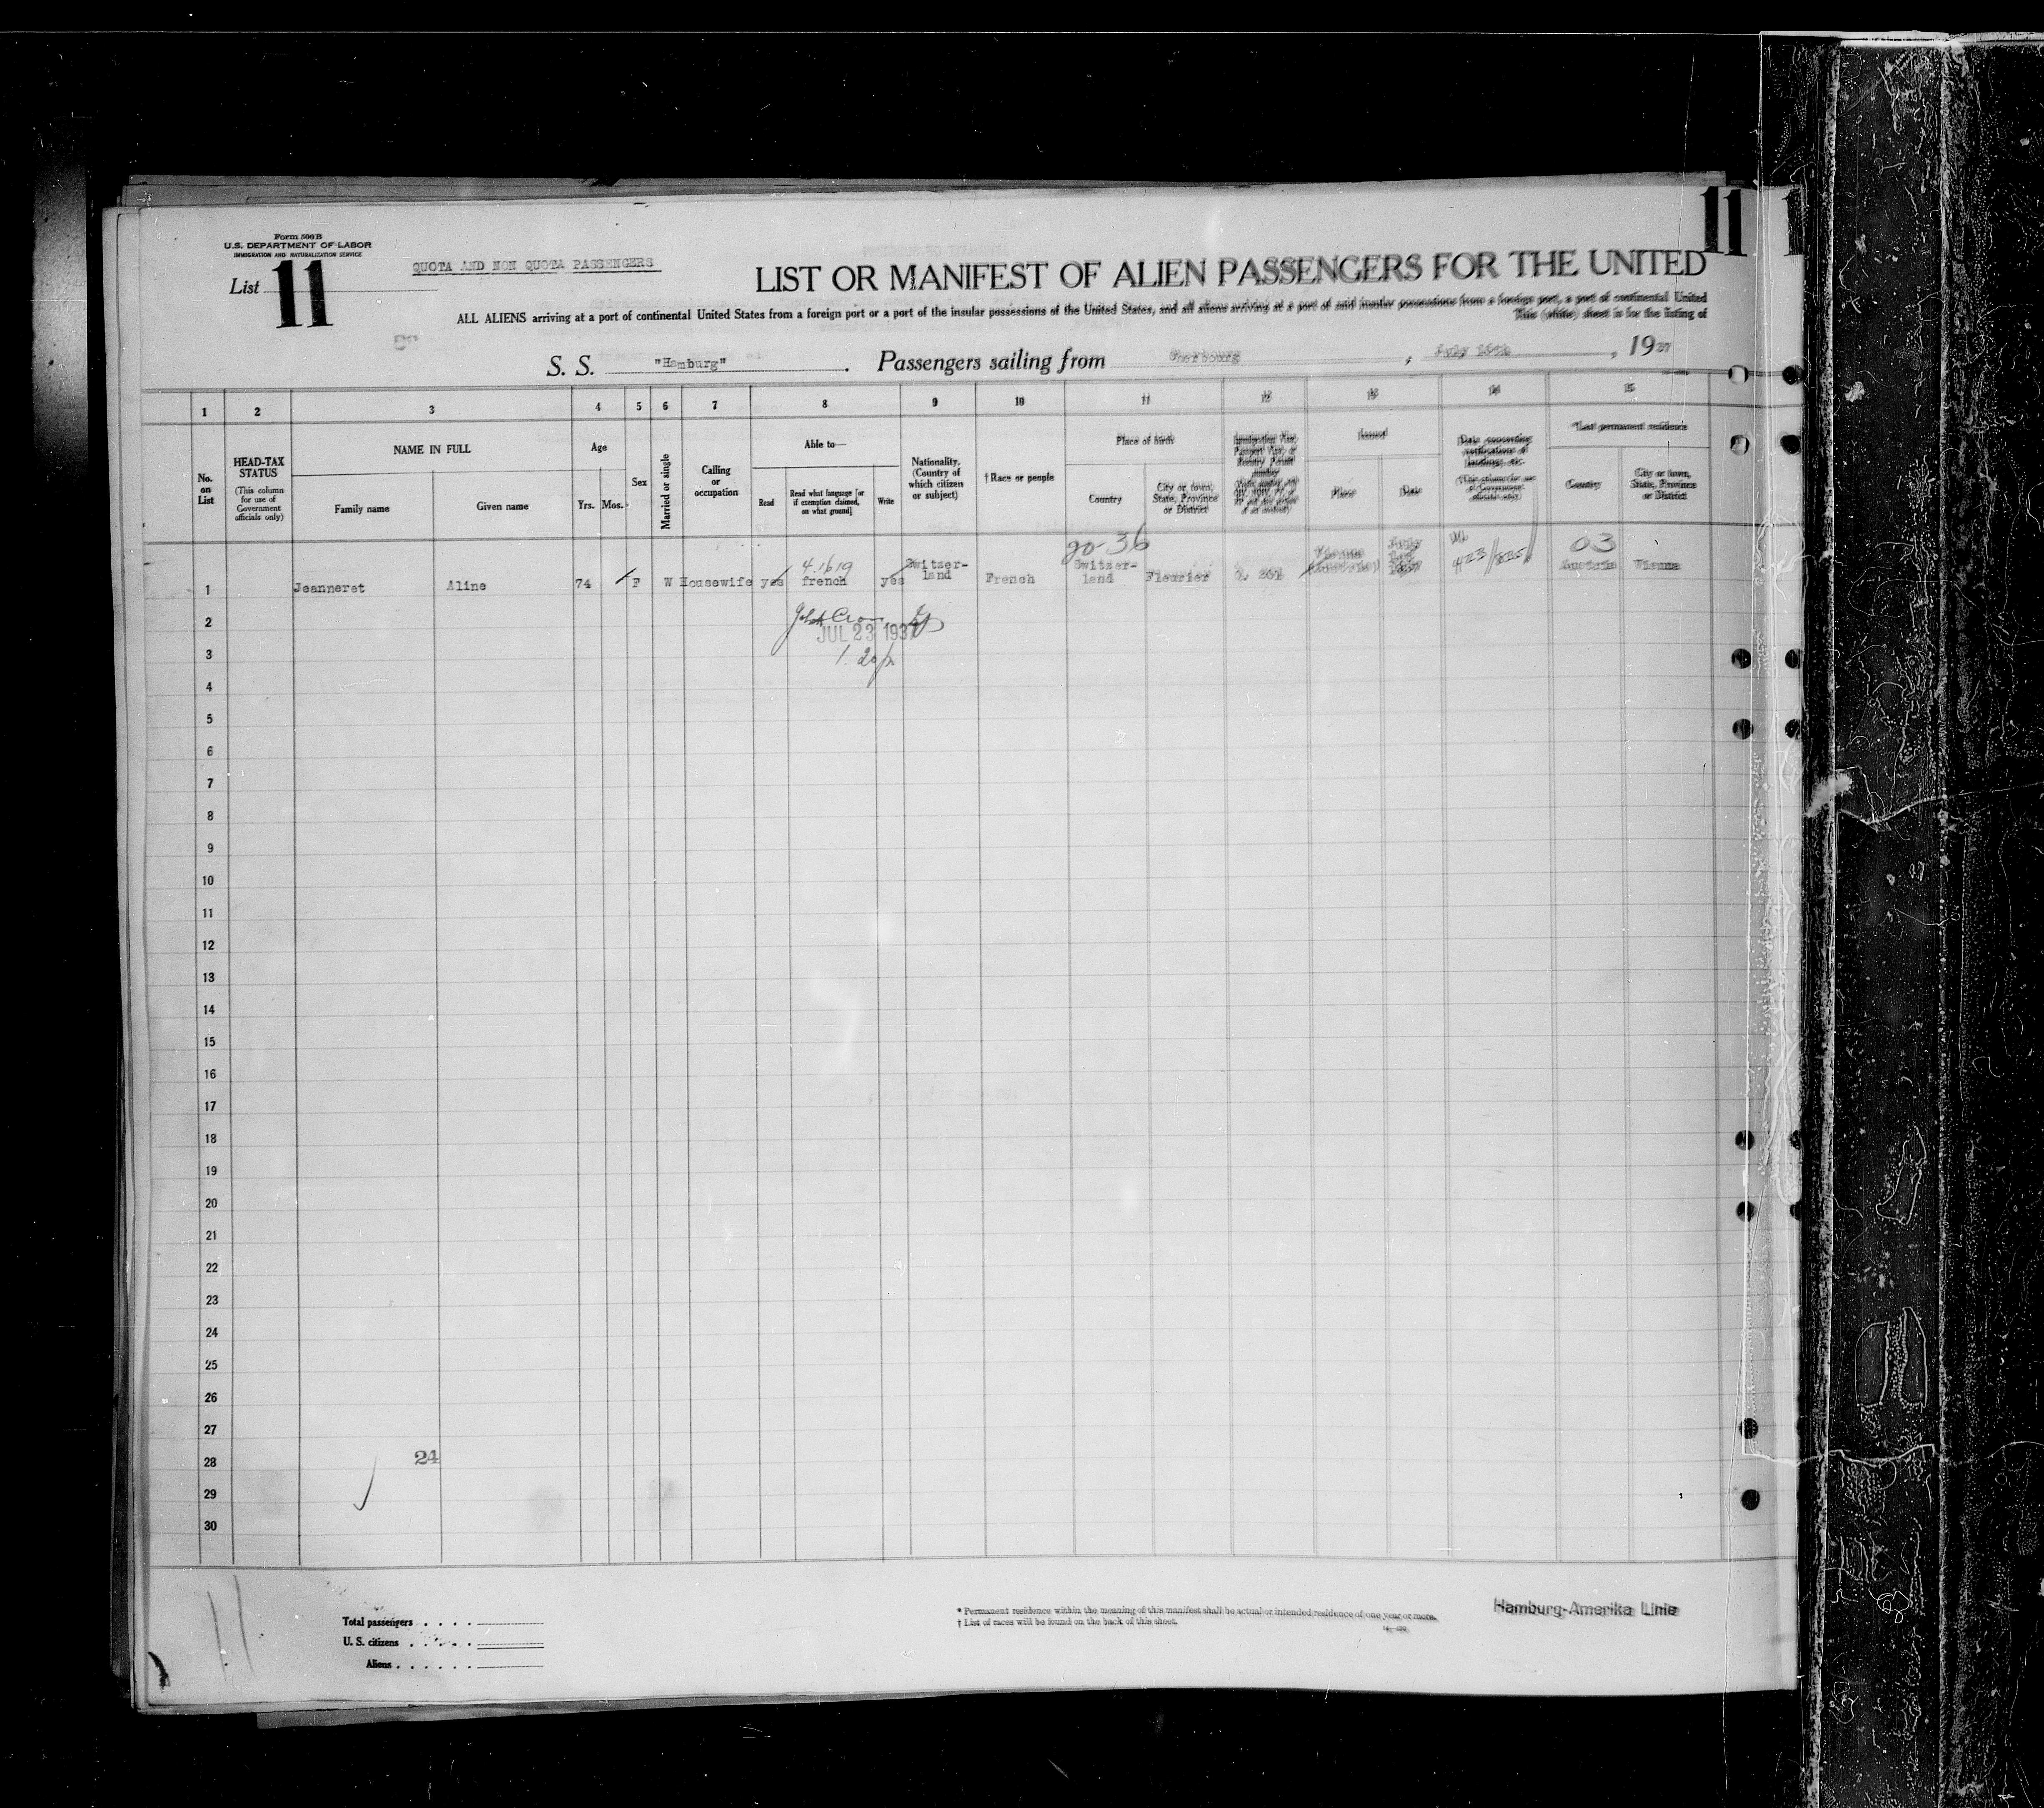 11
Form 500 B
U.S. DEPARTMENT OF LABOR
IMMIGRATION AND NATURALIZATION SERVICE
List 11
QUOTA AND NON QUOTA PASSENGERS
LIST OR MANIFEST OF ALIEN PASSENGERS FOR THE UNITED
ALL ALIENS arriving at a port of continental United States from a foreign port or a port of the insular possessions of the United States, and all aliens arriving at a port of said insular possessions from a foreign port, a port of continental United
This (white) sheet is for the listing of
S. S. "Hamburg". Passengers sailing from Cherbourg, July 1937
1 2 3 4 5 6 7 8 9 10 11 12 13 14 15
No. on List
HEAD-TAX STATUS
(This column for use of Government officials only)
NAME IN FULL
Family name
Given name
Age
Yrs. Mos.
Sex
Married or single
Calling or occupation
Able to—
Read
Read what language [or if exemption claimed, on what ground]
Write
Nationality. (Country of which citizen or subject)
† Race or people
Place of birth
Country
City or town, State, Province or District
Issued
Place
Date
Data concerning verifications of landings, etc.
(This column for use of Government officials only)
*Last permanent residence
Country
City or town, State, Province or District
20-36
03
4.1619
1 Jeanneret Aline 74 F W Housewife yes french yes Switzer-land French Switzer-land Fleurier Austria Vienna
2
JUL 23 1937
3
4
5
6
7
8
9
10
11
12
13
14
15
16
17
18
19
20
21
22
23
24
25
26
27
28 24
29
30
11
Total passengers
U. S. citizens
Aliens
* Permanent residence within the meaning of this manifest shall be actual or intended residence of one year or more.
† List of races will be found on the back of this sheet.
Hamburg-Amerika Linie